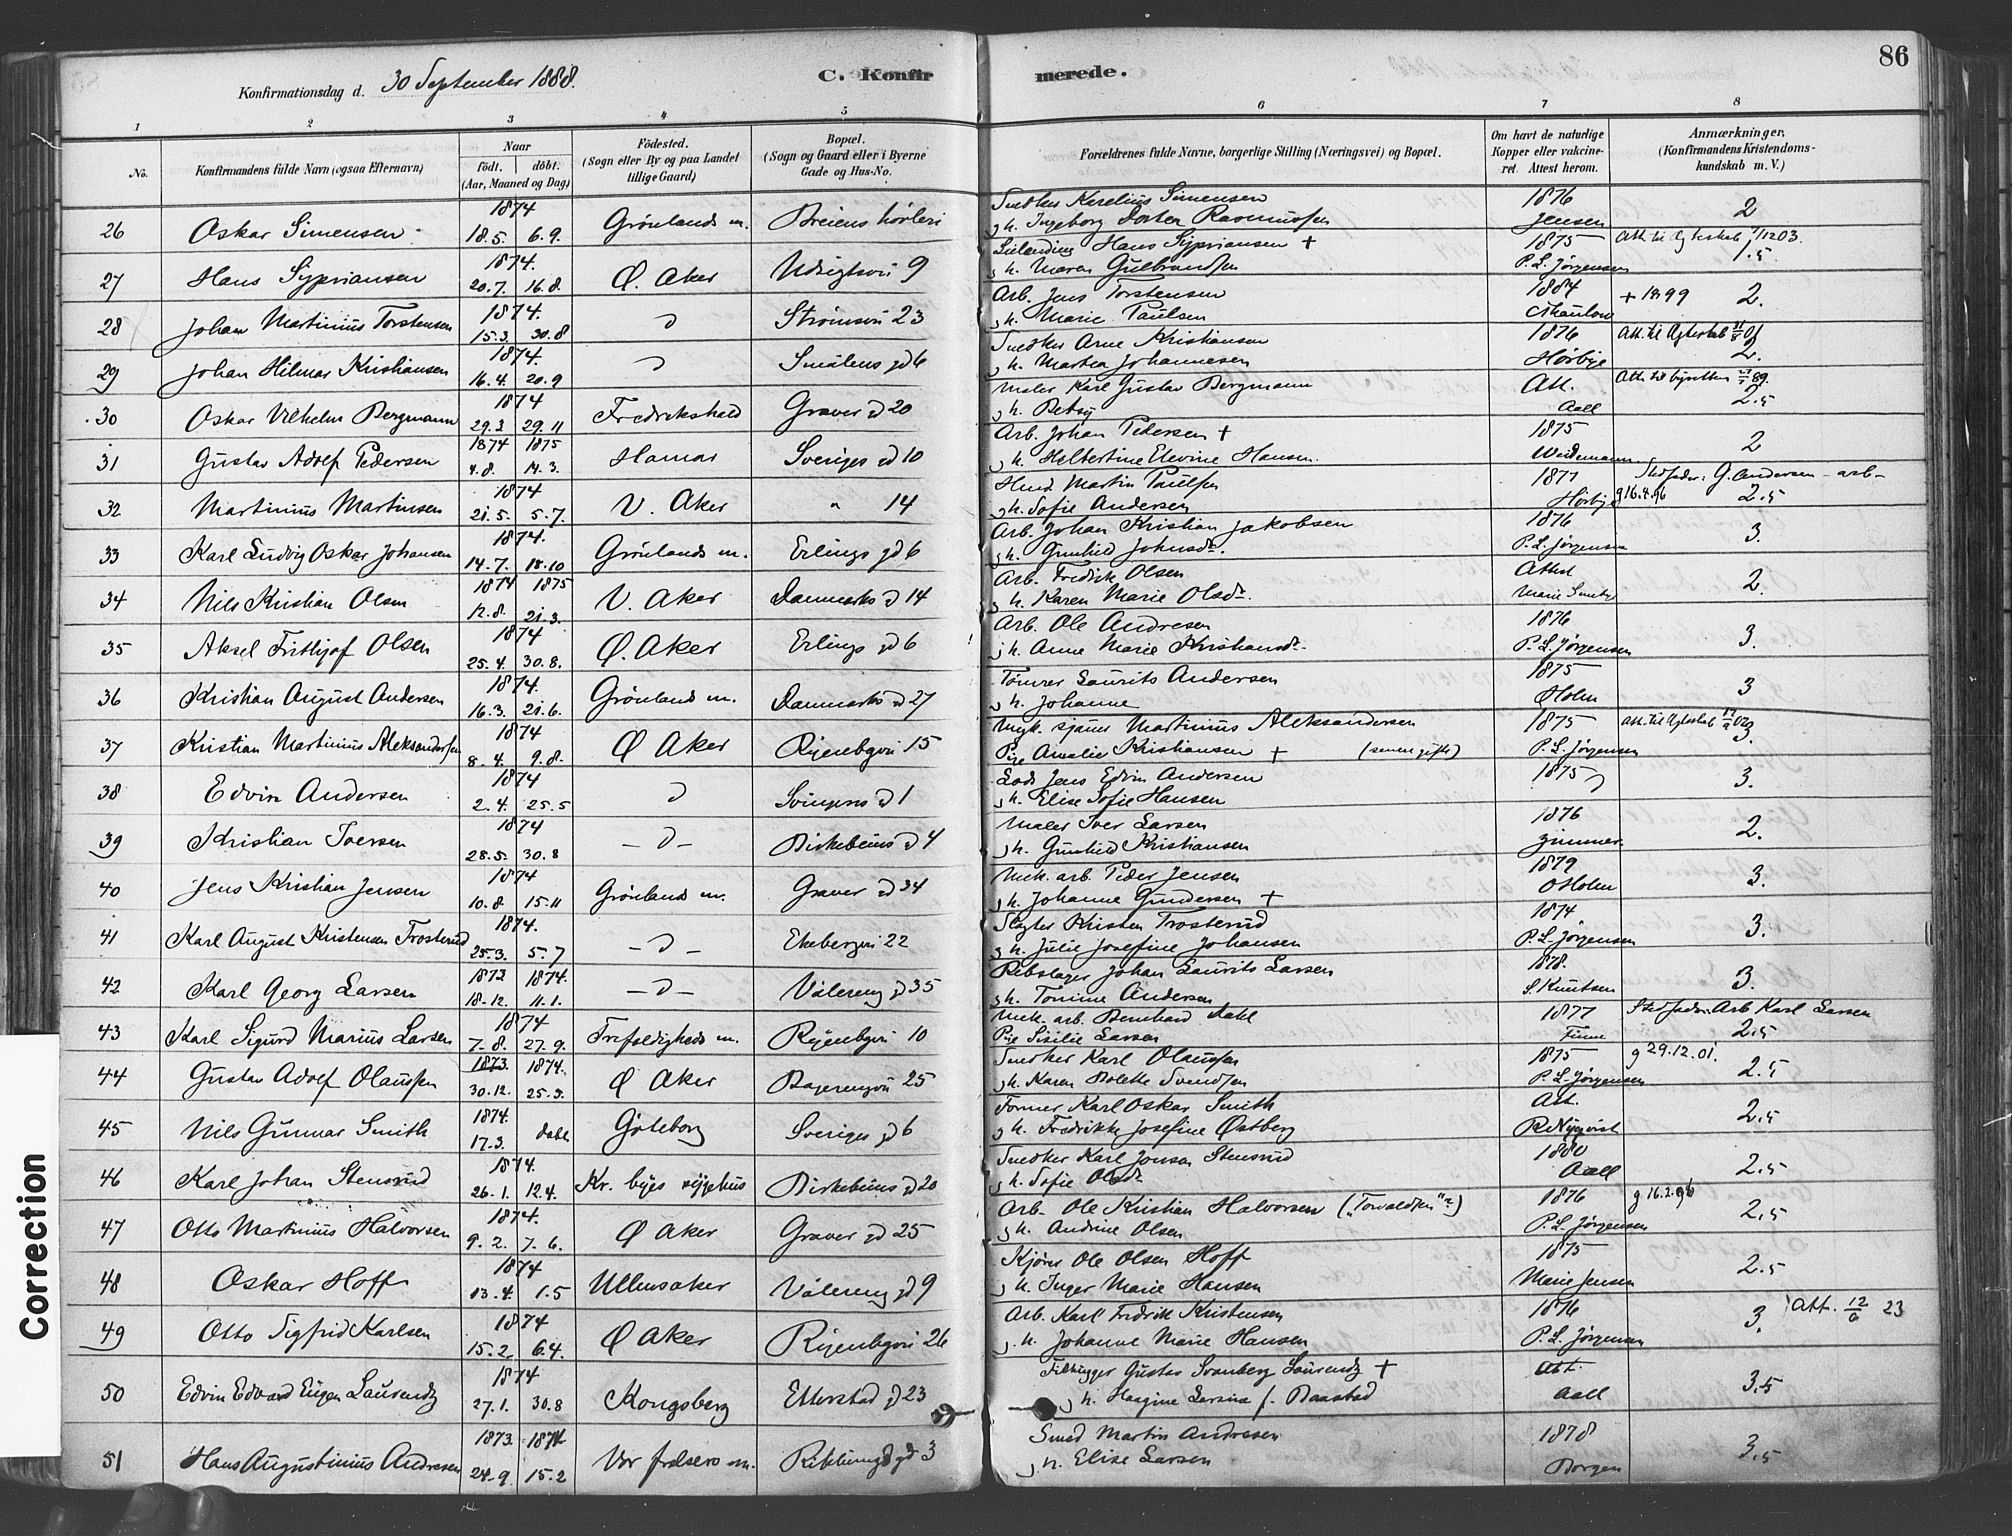 86
Konfirmationsdag d. 30 September 1888.
C. Konfir merede.
1 2 3 4 5 6 7 8
No.
Konfirmandens fulde Navn (ogsaa Efternavn)
Naar
födt. döbt.
(Aar, Maaned og Dag)
Födested.
(Sogn eller By og paa Landet
tillige Gaard)
Bopæl.
(Sogn og Gaard eller i Byerne
Gade og Hus-No.
Forældrenes fulde Navne, borgerlige Stilling (Næringsvei) og Bopæl.
Om havt de naturlige
Kopper eller vakcine-
ret. Attest herom.
Anmærkninger.
(Konfirmandens Kristendoms-
kundskab m. V.)
1874 Snedker Kerelius Simensen 1876
26 Oskar Simensen 18.5. 6.9. Grönlands m. Breiens hörleri h. Ingeborg Dortea Rasmussen Jensen 2
1874. Hans Sypriansen + 1875 Att. til Egteskab 1/12 03.
27 Hans Sypriansen 20.7. 16.8. Ø. Aker Udsigtsvei 9 h. Maren Gulbrandsen P. L. Jørgensen 1.5
1874. Arb. Jens Torstensen 1884 + 1899
28 Johan Martinius Torstensen 15.3. 30.8 d Strömsvei 23 h. Marie Paulsen 2.
1874 Snedker Arne Kristiansen 1876 Att. til Egteskab 01
29 Johan Hilmar Kristiansen 16.4. 20.9 d Smålens gd 6 h. Martea Johannesen Hörbye 2.
1874 Maler Karl Gustav Bergmann Att. 89
30 Oskar Vilhelm Bergmann 29.3 29.11 Fredrikshald Graver gd 20 h. Betsy Aall 2.5
1874 1875 Arb. Johan Pedersen + 1875
31 Gustav Adolf Pedersen 4.8. 14.3. Hamar Sveriges gd 10 h. Helbertine Elevine Hansen. Weidemann 2
1874 Martin Paulsen 1877 Stedfader: G. Andersen - arb-
32 Martinius Martinsen 21.5. 5.7. V. Aker " 14 h. Sofie Andersen Hörbye g 16.4.96 2.5
1874. Arb. Johan Kristian Jakobsen 1876
33 Karl Ludvig Oskar Johansen 14.7. 18.10 Grönlands m. Erlings gd 6 h. Gunhild Johnsdr. P. L. Jørgensen 3.
1874 1875 Arb. Fredrik Olsen Attest
34 Nils Kristian Olsen 12.8. 21.3. V. Aker Danmarks gd 14 h. Karen Marie Olsdr. Marie Smeby 2.
1874 Arb. Ole Andresen 1876
35 Aksel Frithjof Olsen 25.4. 30.8. Ø. Aker Erlings gd 6 h. Anne Marie Kristiansdr. P. L. Jørgensen 3.
1874. Tömrer Laurits Andersen 1875
36 Kristian August Andersen 16.3. 21.6. Grönland m. Danmarks gd 27 h. Johanne Holm 3
1874 Martinius Aleksandersen 1875 Att. til Egteskab 02
37 Kristian Martinius Aleksandersen 8.4. 9.8. Ø Aker Ryenbgvei 15 Pige Amalie Kristiansen + (senere gift) P. L. Jørgensen 3.
1874 Lods Jens Edvin Andersen 1875
38 Edvin Andersen 2.4. 25.5 d Svingens gd 1 h. Elise Sofie Hansen 3.
1874 Maler Iver Larsen 1876
39 Kristian Iversen 28.5. 30.8 - d - Birkebeins gd 4 h. Gunhild Kristiansen Zimmer 2.
1874 Mek. arb. Peder Jensen 1879
40 Jens Kristian Jensen 10.8. 15.11 Grönlands m. Graver gd 34 h. Johanne Gundersen + Holm 3.
1874. Slagter Kristen Trosterud 1874.
41 Karl August Kristensen Trosterud 25.3. 5.7 - d - Ekebergvei 22 h. Julie Josefine Johansen P. L. Jørgensen 3.
1873 1874. Rebslager Johan Laurits Larsen 1878.
42 Karl Georg Larsen 18.12. 11.1. - d - Vålereng gd 35 h. Tomine Andersen S. Knutsen 3.
1874 Mek. arb. Bernhard Dahl 1877 Stedfader: Arb Karl Larsen
43 Karl Sigurd Marius Larsen 7.8. 27.9. Trefoldigheds m. Ryenbgvei 10 Pige Sisilie Larsen Finne 2.5
1873. 1874. Snedker Karl Olaussen 1875 g 29.12.01.
44 Gustav Adolf Olaussen 30.12. 25.3. Ø Aker Bøyerengvei 25 h. Karen Bolette Svendsen P. L. Jørgensen 2.5
1874. Former Karl Oskar Smith Att.
45 Nils Gunnar Smith 17.3. Göteborg Sveriges gd 6 h. Fredrikke Josefine Østberg R. Nyqvist 2.5
1874. Snedker Karl Jonson Stensrud 1880
46 Karl Johan Stensrud 26.1. 12.4. Kr. byes sygehus Birkebeins gd 20 h. Sofie Olsdr. Aall 2.5
1874. Arb. Ole Kristian Halvorsen ("Torvaldsen"?) 1876 g 16.2.96
47 Otto Martinius Halvorsen 9.2. 7.6. Ø Aker Graver gd 25 h. Andrine Olsen P. L. Jørgensen 2.5
1874 Kjörer Ole Olsen Hoff 1875
48 Oskar Hoff 13.4. 1.5 Ullensaker Vålereng gd 9 h. Inger Marie Hansen Marie Jensen 2.5
1874 Arb. Karl Fredrik Kristensen 1876 Att. 12/6 23
49 Otto Sigfrid Karlsen 15.2. 6.4. Ø Aker Ryenbgvei 26 h. Johanne Marie Hansen P. L. Jørgensen 3.
1874 Filhugger Gustav Svanberg Laurendz + Att.
50 Edvin Edvard Eugen Laurendz 27.1. 30.8 Kongsberg Etterstad gd 23 h. Hargine Larsine f. Baastad Aall 3.5
1873. 1874. Smed Martin Andresen 1878
51 Hans Augustinius Andresen 24.9. 15.2 Vor frelsers m. Ribbunggd gd 3 h. Elise Larsen Borgen 3.5
Correction